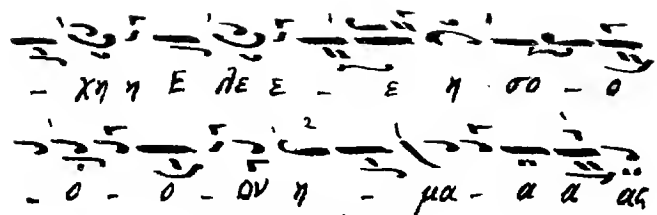 - χη η Ε λε ε - ε η σο - ο
- ο - ο - ΩΝ η - μα - α α ας